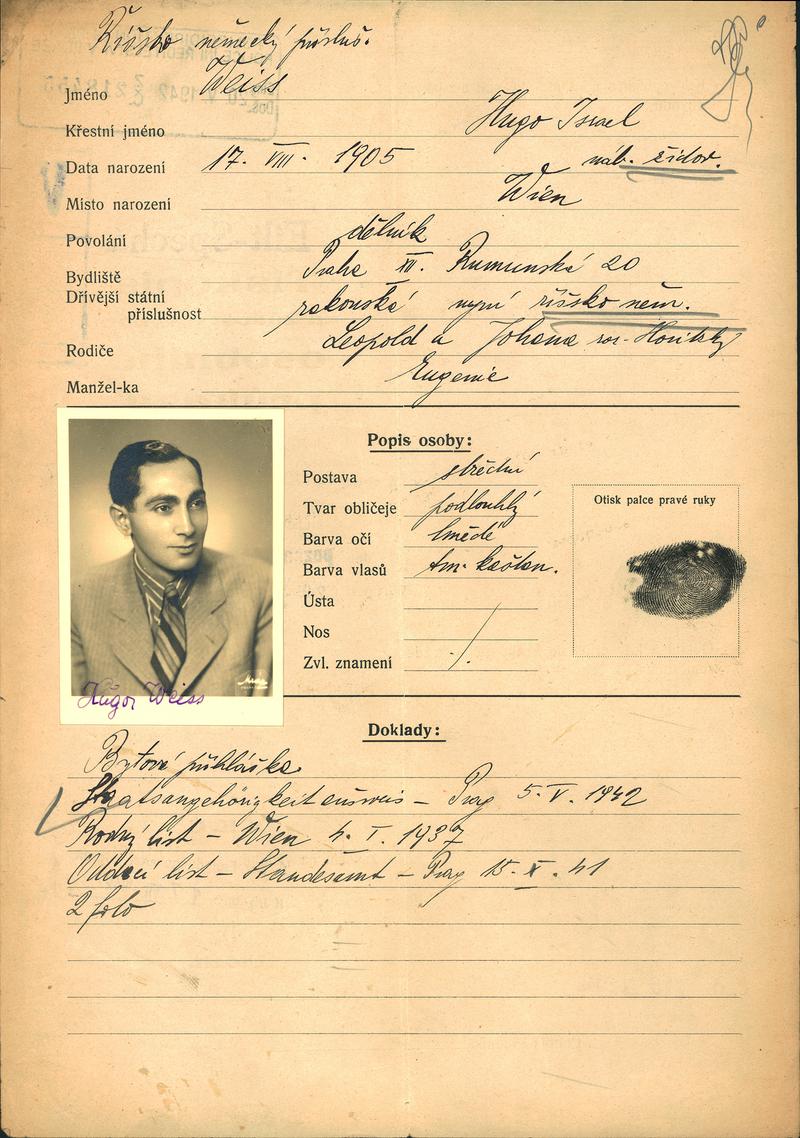 Říšsko německý přísluš.
Jméno Weiss
Křestní jméno Hugo Israel
Data narození 17. VIII. 1905 náb. židov.
Místo narození Wien
Povolání dělník
Bydliště Praha XII. Rumunská 20
Dřívější státní
příslušnost rakouská nyní říšsko něm.
Rodiče Leopold a Johana roz.
Manžel-ka Eugenie
Popis osoby:
Postava střední
Tvar obličeje podlouhlý
Barva očí hnědé
Barva vlasů tm. kaštan.
Ústa
Nos
Zvl. znamení
Otisk palce pravé ruky
Hugo Weiss
Doklady:
Bytová přihláška
Staatsangehörigkeitausweis – Prag 5. V. 1942
Rodný list – Wien 4. I. 1937
Oddací list – Standesamt – Prag 15. X. 41
2 foto